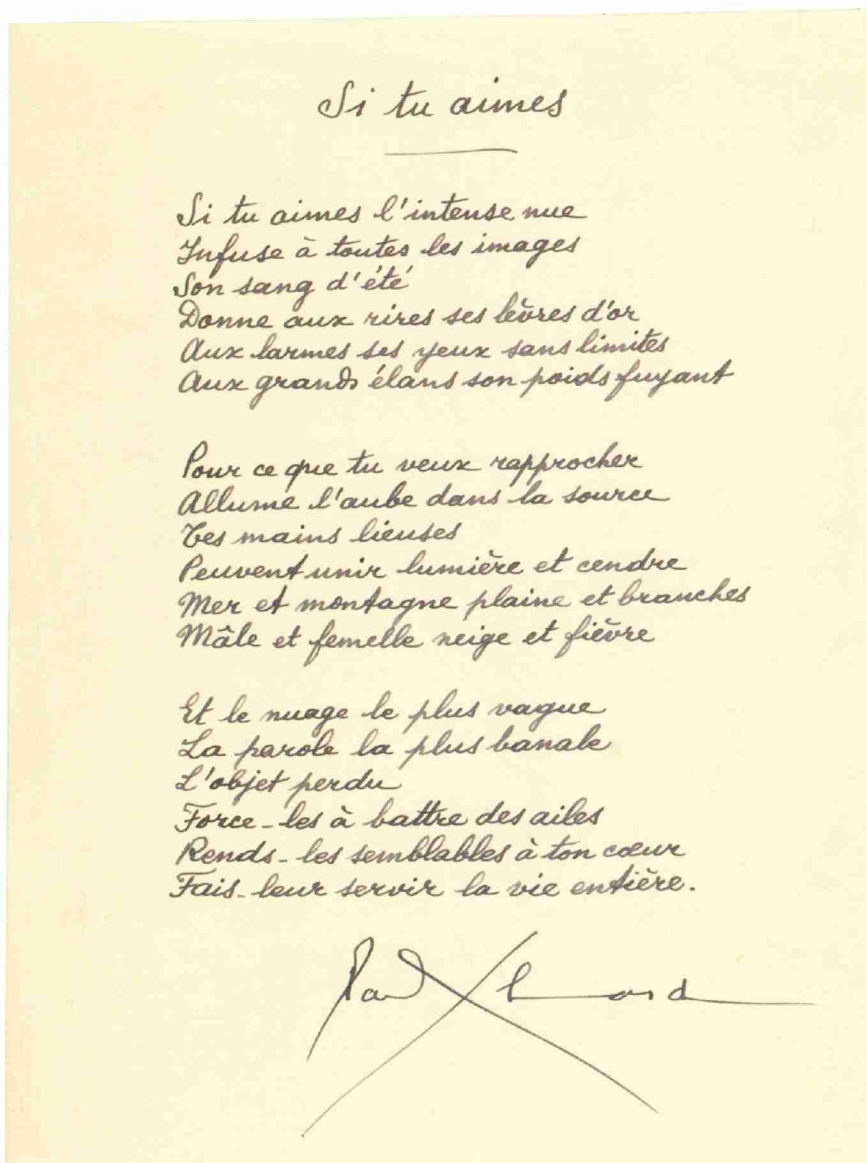 Si tu aimes
Si tu aimes l'intense nue
Infuse à toutes les images
Son sang d'été
Donne aux rires ses lèvres d'or
Aux larmes ses yeux sans limites
Aux grands élans son poids fuyant
Pour ce que tu veux rapprocher
Allume l'aube dans la source
Tes mains lieuses
Peuvent unir lumière et cendre
Mer et montagne plaine et branches
Mâle et femelle neige et fièvre
Et le nuage le plus vague
La parole la plus banale
L'objet perdu
Force-les à battre des ailes
Rends-les semblables à ton cœur
Fais-leur servir la vie entière.
Paul Eluard